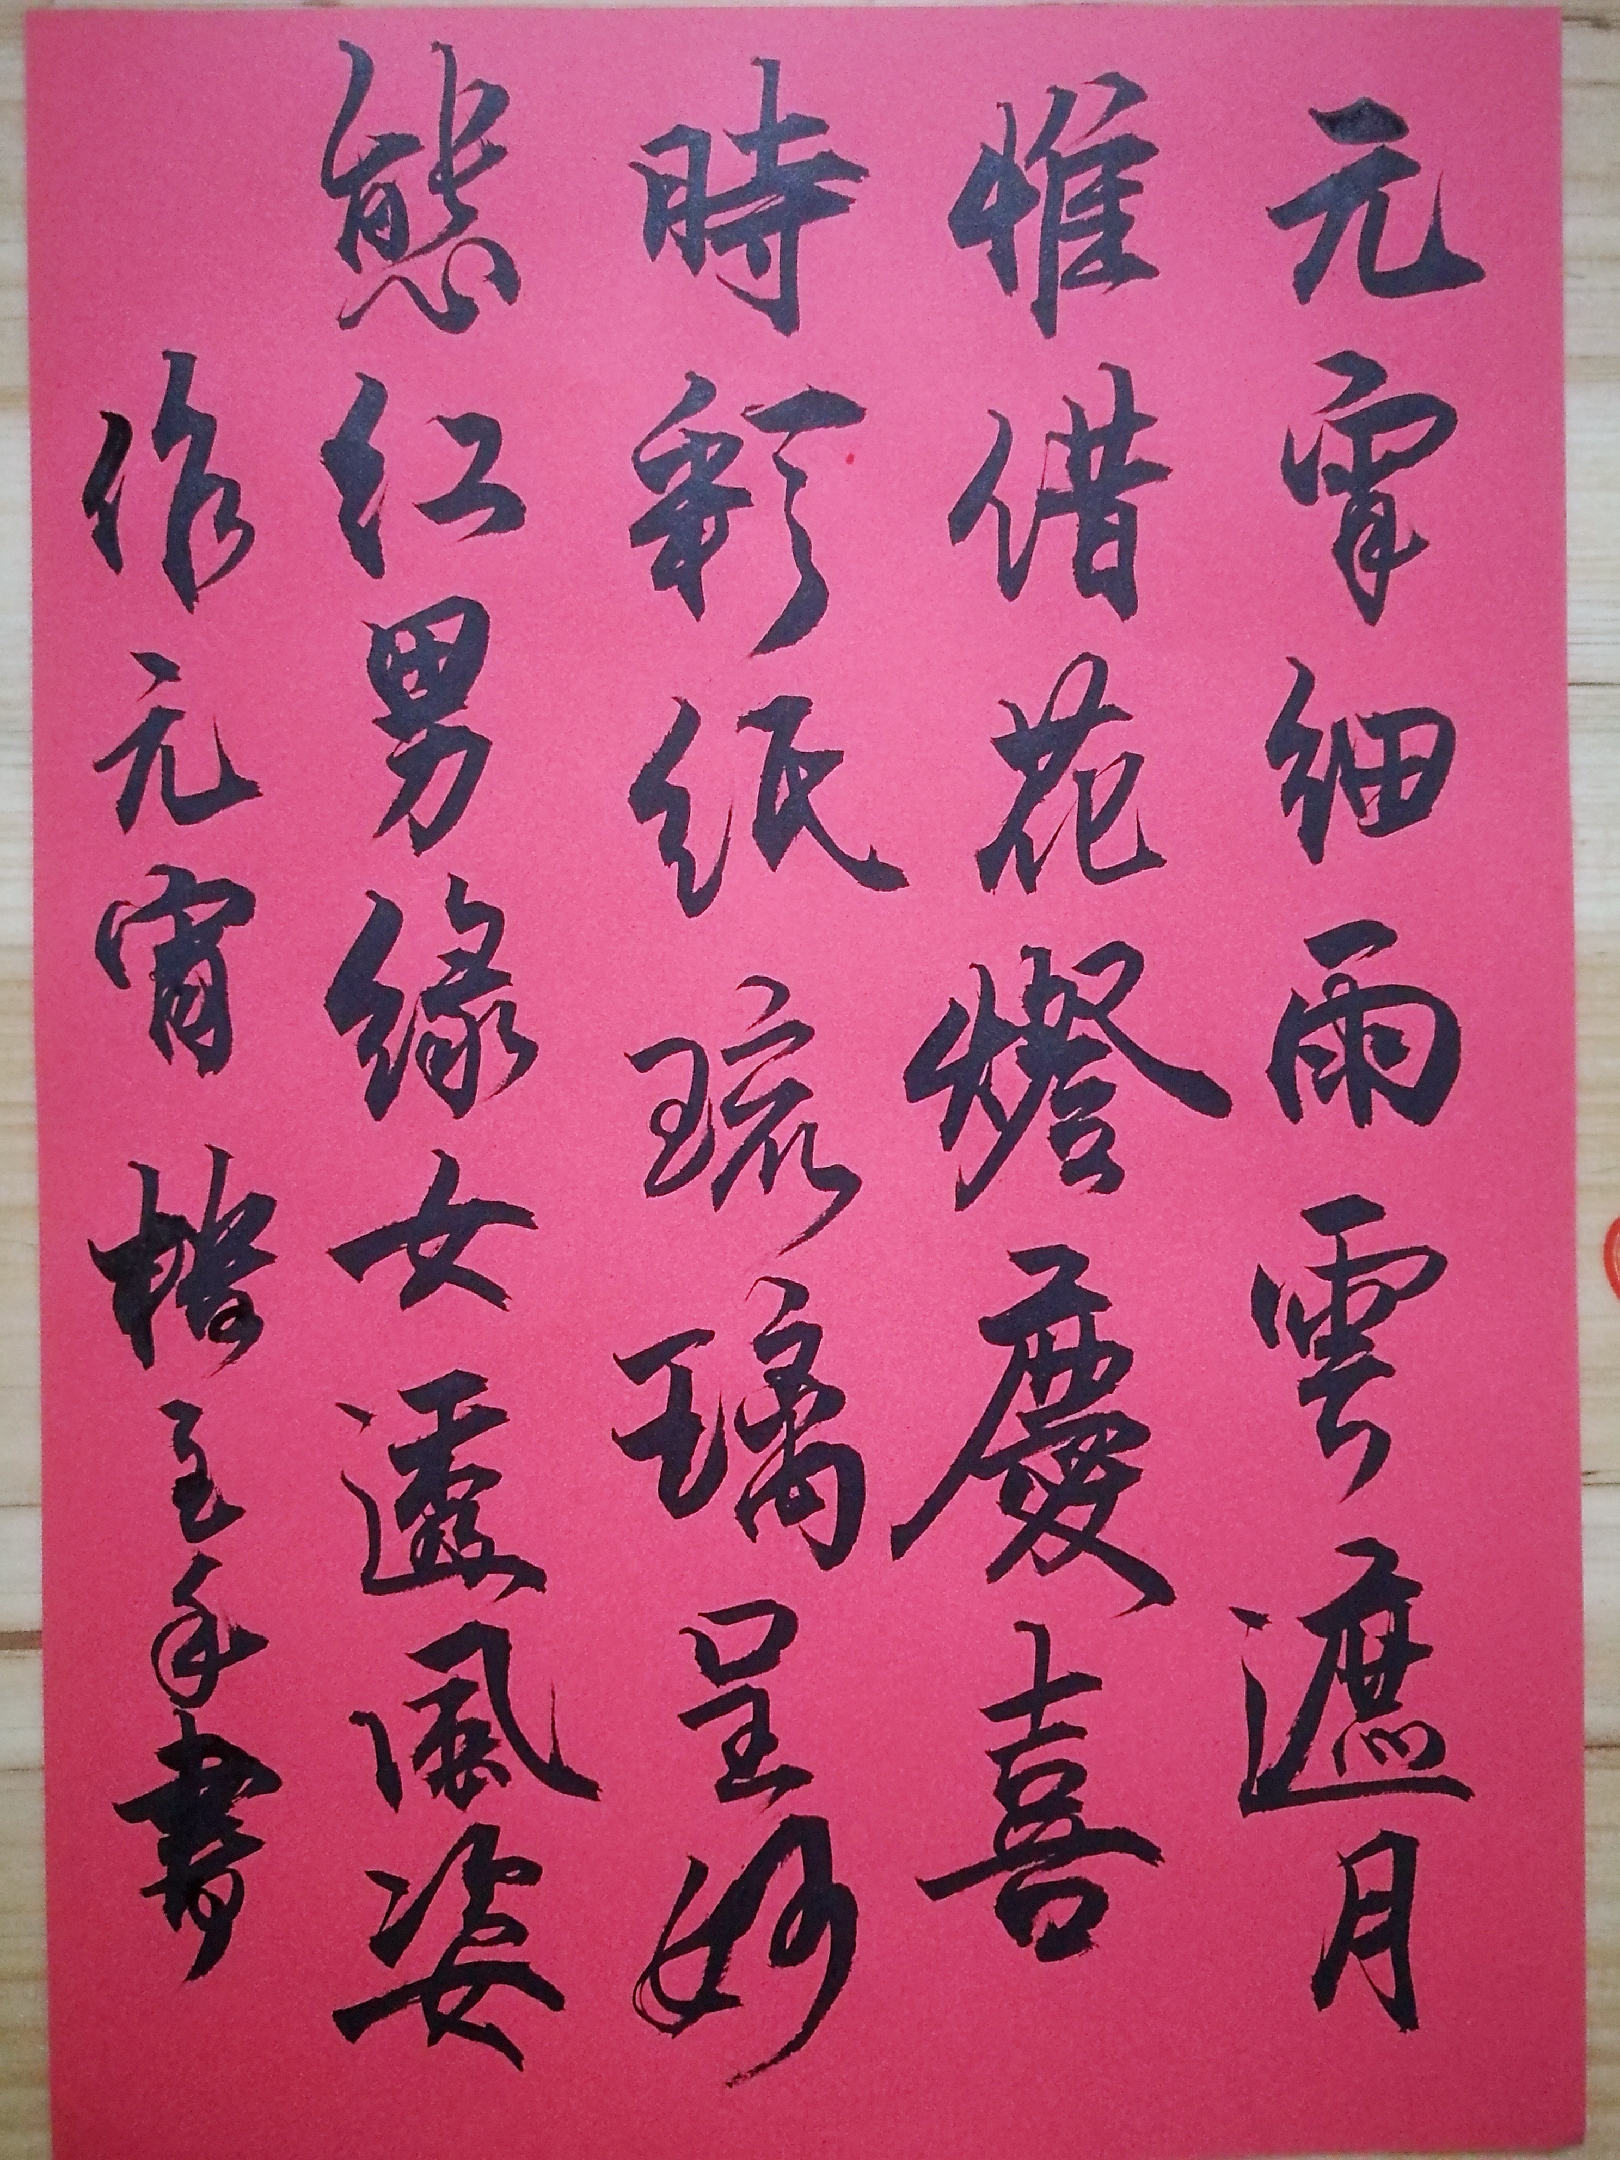 元宵細雨雲遮月
惟借花燈慶喜
時彩紙琉璃呈妙
態紅男綠女逞風姿
作元宵
書